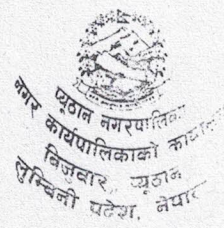 प्यूठान नगरपालिका
नगर कार्यपालिकाको कार्यालय
बिजुवार, प्यूठान
लुम्बिनी प्रदेश, नेपाल